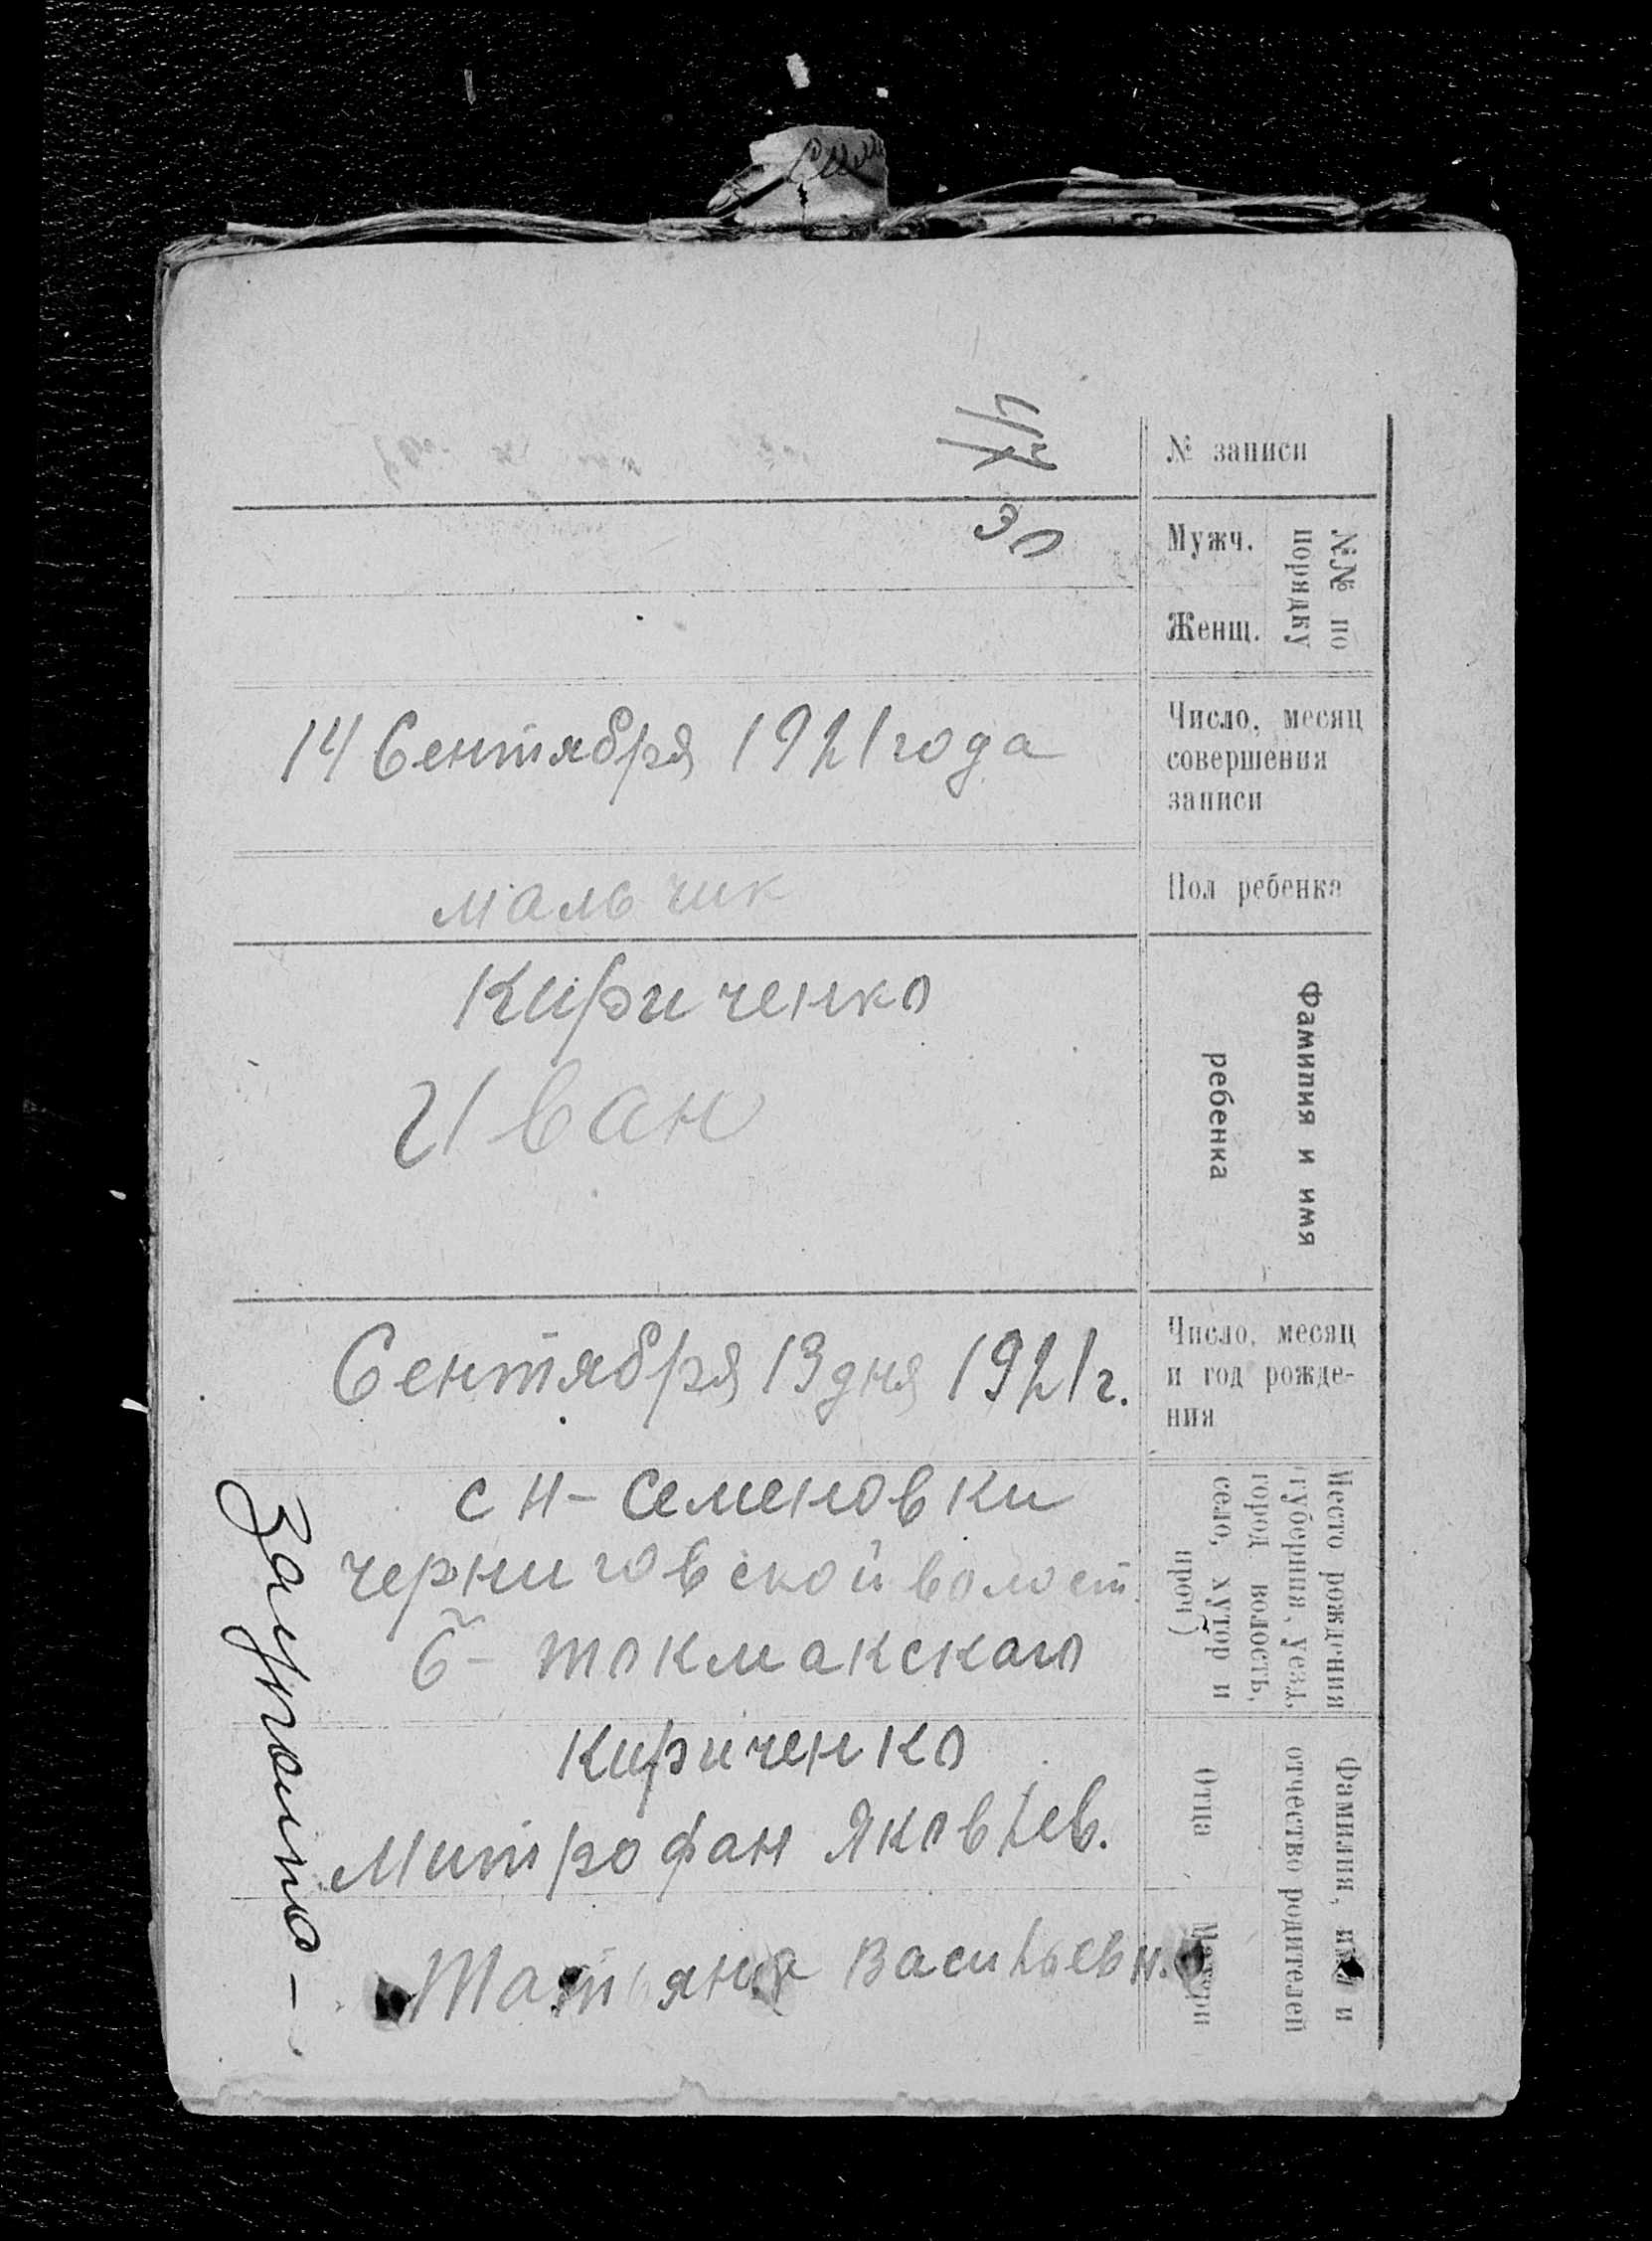 № записи
№№ по
порядку
Мужч.
30
Женщ.
Число, месяц
совершения
записи
14 Сентября 1921 года
Пол ребенка
мальчик
Фамилия и имя
ребенка
Кириченко
Иван
Число, месяц
и год рожде-
ния
Сентября 13 дня 1921 г.
Место рождения
(губерния, уезд,
город волость,
село, хутор и
проч)
с Н-Семеновки
черниговской волост.
Б-токмакскаго
Фамилия, имя и
отчество родителей
Отца
Кириченко
Митрофан Яковлев.
Матери
Татьяна Васильевн.